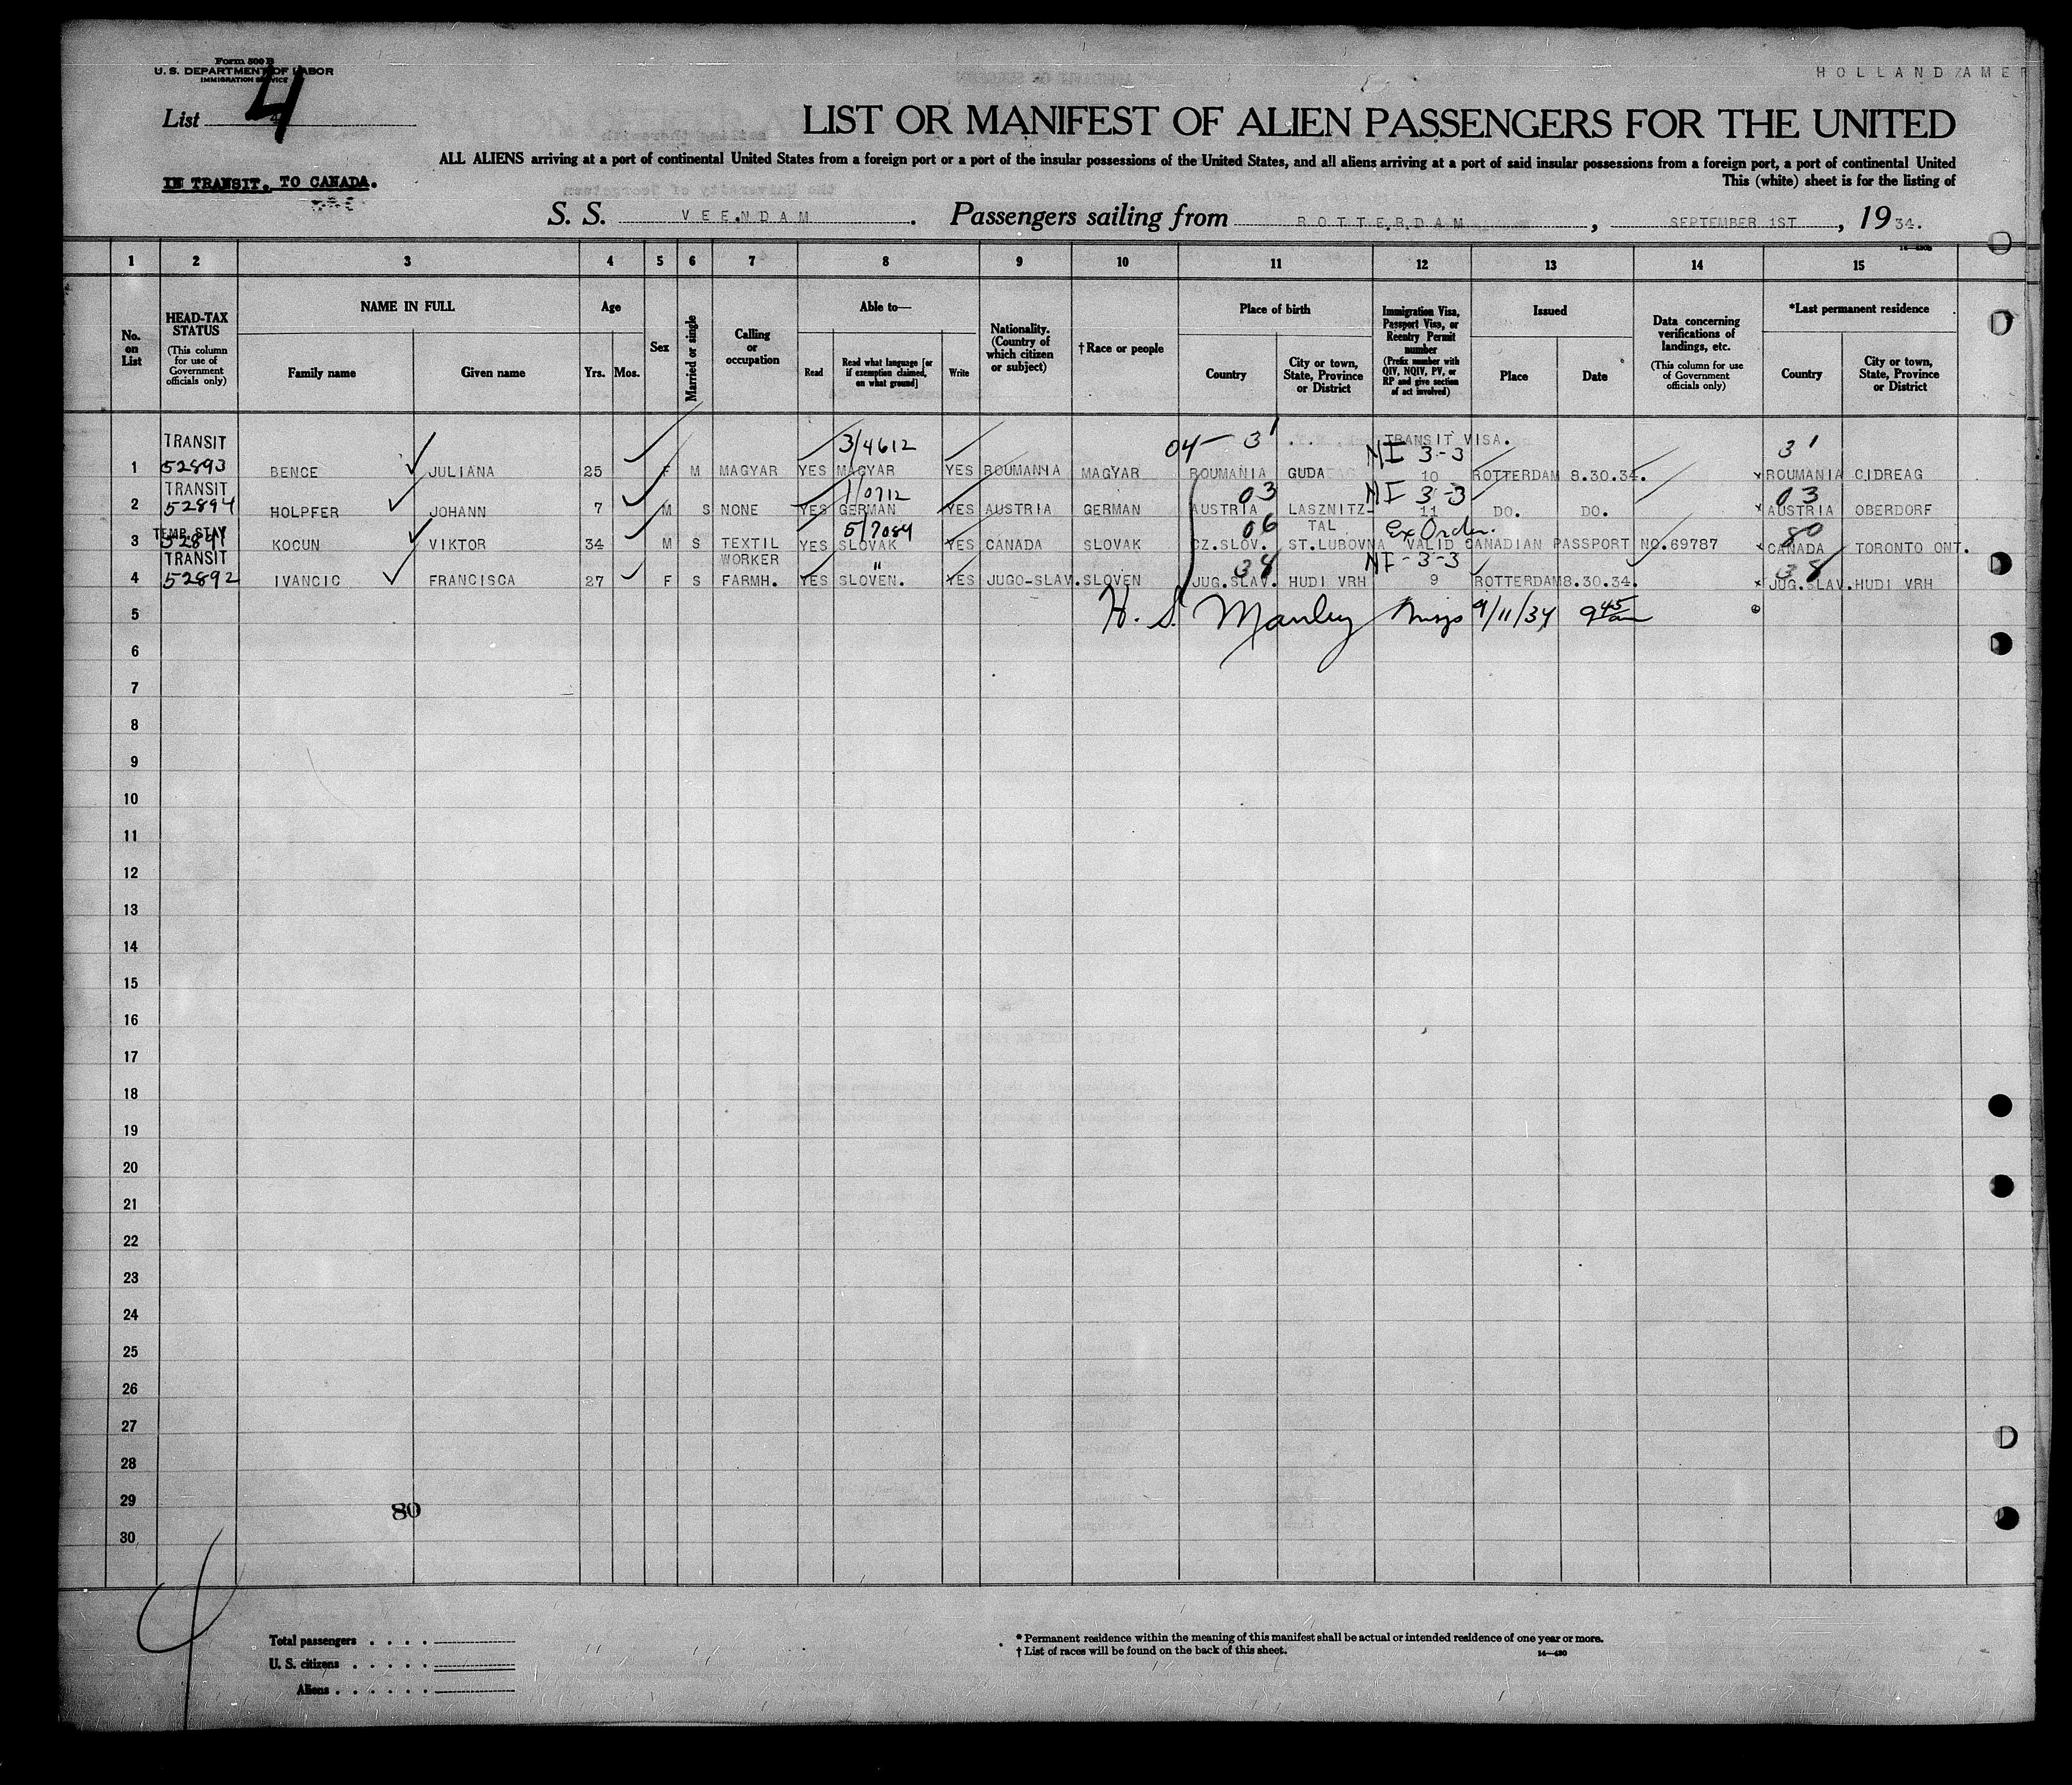 Form 500 B
U. S. DEPARTMENT OF LABOR
IMMIGRATION SERVICE
HOLLAND AMER
List 4
4
LIST OR MANIFEST OF ALIEN PASSENGERS FOR THE UNITED
ALL ALIENS arriving at a port of continental United States from a foreign port or a port of the insular possessions of the United States, and all aliens arriving at a port of said insular possessions from a foreign port, a port of continental United
IN TRANSIT. TO CANADA.
This (white) sheet is for the listing of
S. S. VEENDAM. Passengers sailing from ROTTERDAM, SEPTEMBER 1ST, 1934.
1 2 3 4 5 6 7 8 9 10 11 12 13 14 15
No. on List
HEAD-TAX STATUS
(This column for use of Government officials only)
NAME IN FULL
Family name
Given name
Age
Yrs. Mos.
Sex
Married or single
Calling or occupation
Able to—
Read
Read what language [or if exemption claimed, on what ground]
Write
Nationality. (Country of which citizen or subject)
†Race or people
Place of birth
Country
City or town, State, Province or District
Immigration Visa, Passport Visa, or Reentry Permit number
(Prefix number with QIV, NQIV, PV, or RP and give section of act involved)
Issued
Place
Date
Data concerning verifications of landings, etc.
(This column for use of Government officials only)
*Last permanent residence
Country
City or town, State, Province or District
TRANSIT 3/4612 04— 31 TRANSIT VISA. NI 3-3 31
1 52893 BENCE JULIANA 25 F M MAGYAR YES MAGYAR YES ROUMANIA MAGYAR ROUMANIA GUDA 10 ROTTERDAM 8.30.34. ROUMANIA CIDREAG
TRANSIT 1/0712 03 NI 3-3 03
2 52894 HOLPFER JOHANN 7 M S NONE YES GERMAN YES AUSTRIA GERMAN AUSTRIA LASZNITZ- 11 DO. DO. AUSTRIA OBERDORF
TEMP.STAY 5/7084 06 TAL Ex Order. 80
3 52891 KOCUN VIKTOR 34 M S TEXTIL YES SLOVAK YES CANADA SLOVAK CZ.SLOV. ST.LUBOVNA VALID CANADIAN PASSPORT NO.69787 CANADA TORONTO ONT.
TRANSIT WORKER " 38 NI-3-3 38
4 52892 IVANCIC FRANCISCA 27 F S FARMH. YES SLOVEN. YES JUGO-SLAV. SLOVEN JUG.SLAV. HUDI VRH 9 ROTTERDAM 8.30.34. JUG.SLAV. HUDI VRH
5 H. S. Manley 9/11/34 9 45 am
6
7
8
9
10
11
12
13
14
15
16
17
18
19
20
21
22
23
24
25
26
27
28
29 80
30
Total passengers
U. S. citizens
Aliens
* Permanent residence within the meaning of this manifest shall be actual or intended residence of one year or more.
† List of races will be found on the back of this sheet.
14—430